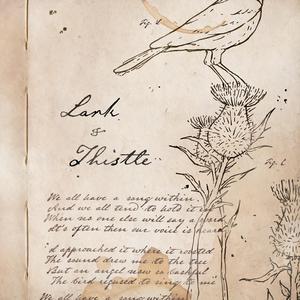 fig. a
Lark
&
Thistle
fig. b
We all have a song within
And we all tend to hold it in
When no one else will say a word
It's often then our voice is heard
I'd approached it where it roosted
The sound drew me to the tree
But an angel now so bashful
The bird refused to sing to me
We all have a song within